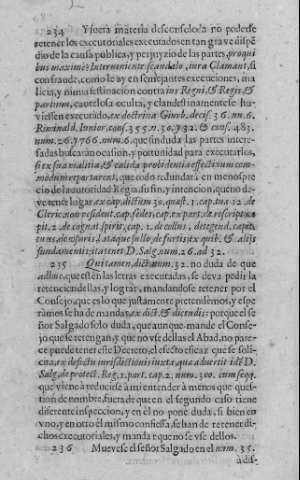 234 Y fuera materia desconsoloda no poderse
retener los executoriales executados en tan graue dispẽ
dio de la causa publica, y perjuyzio de las partes, pro qui
bus maxime interueniente scandalo, iura Clamant, si
con fraude, como le ay en semejantes execuciones, ma
licia, y nimia festinacion contra ius Regni, & Regis, &
partium, cautelosa oculta, y clandestinamente se hu-
uiessen executado, ex doctrina Giurb. decis. 36. num. 6.
Riminald. Iunior. cons. 355. n. 30. y 32. & cons. 483.
num. 26. y 766. num. 6. que sin duda las partes intere-
sadas buscaràn ocasion, y portunidad para executarlos,
si ex sua malitia, & calida prohibentia effectum com-
modum reportarent, que todo redundarà en menospre
cio de la autoridad Regia, su fin, y intencion, que no de-
ue tener lugar ex cap. dictum 30. quæst. 1. cap. tua 12. de
Cleric. non resident. cap. sedes, cap. ex part. de rescript.
pit. 2. de cognat. spirit. cap. 1. de collus. detegend. capit.
cum
fundamentis tatenet D. Salg. num. 26. ad 32.
235 Quitarnos, dicto num. 32. no duda de que
adhuc, que estèn las letras executadas, se deua pedir la
retencion dellas, y lograr, mandandose retener por el
Consejo, que es lo que justamente pretendemos, y espe
ràmos se ha de mandar, ex dict. & dicendis: porque el se
ñor Salgado solo duda, que aunque mande el Conse-
jo que se retengan, y que no vse dellas el Abad, no pare-
ce puede tener este Decreto, el efecto eficaz que se soli-
cita, ex defectu iurisdictionis sue, ex quæ aduertit idẽ D.
Salg. de protect. Reg. 1. part. cap. 2. num. 300. cum seqq.
que viene à reducirse à mi entender à menos que ques-
tion de nombre, fuera de que en el segundo caso tiene
diferente inspeccion, y en èl no pone duda, si bien en
vno, y en otro el mismo confiessa, se han de retener di-
chos executoriales, y mandar que no se vse dellos.
236 Mueuese el señor Salgado en el num. 35.
à dis-